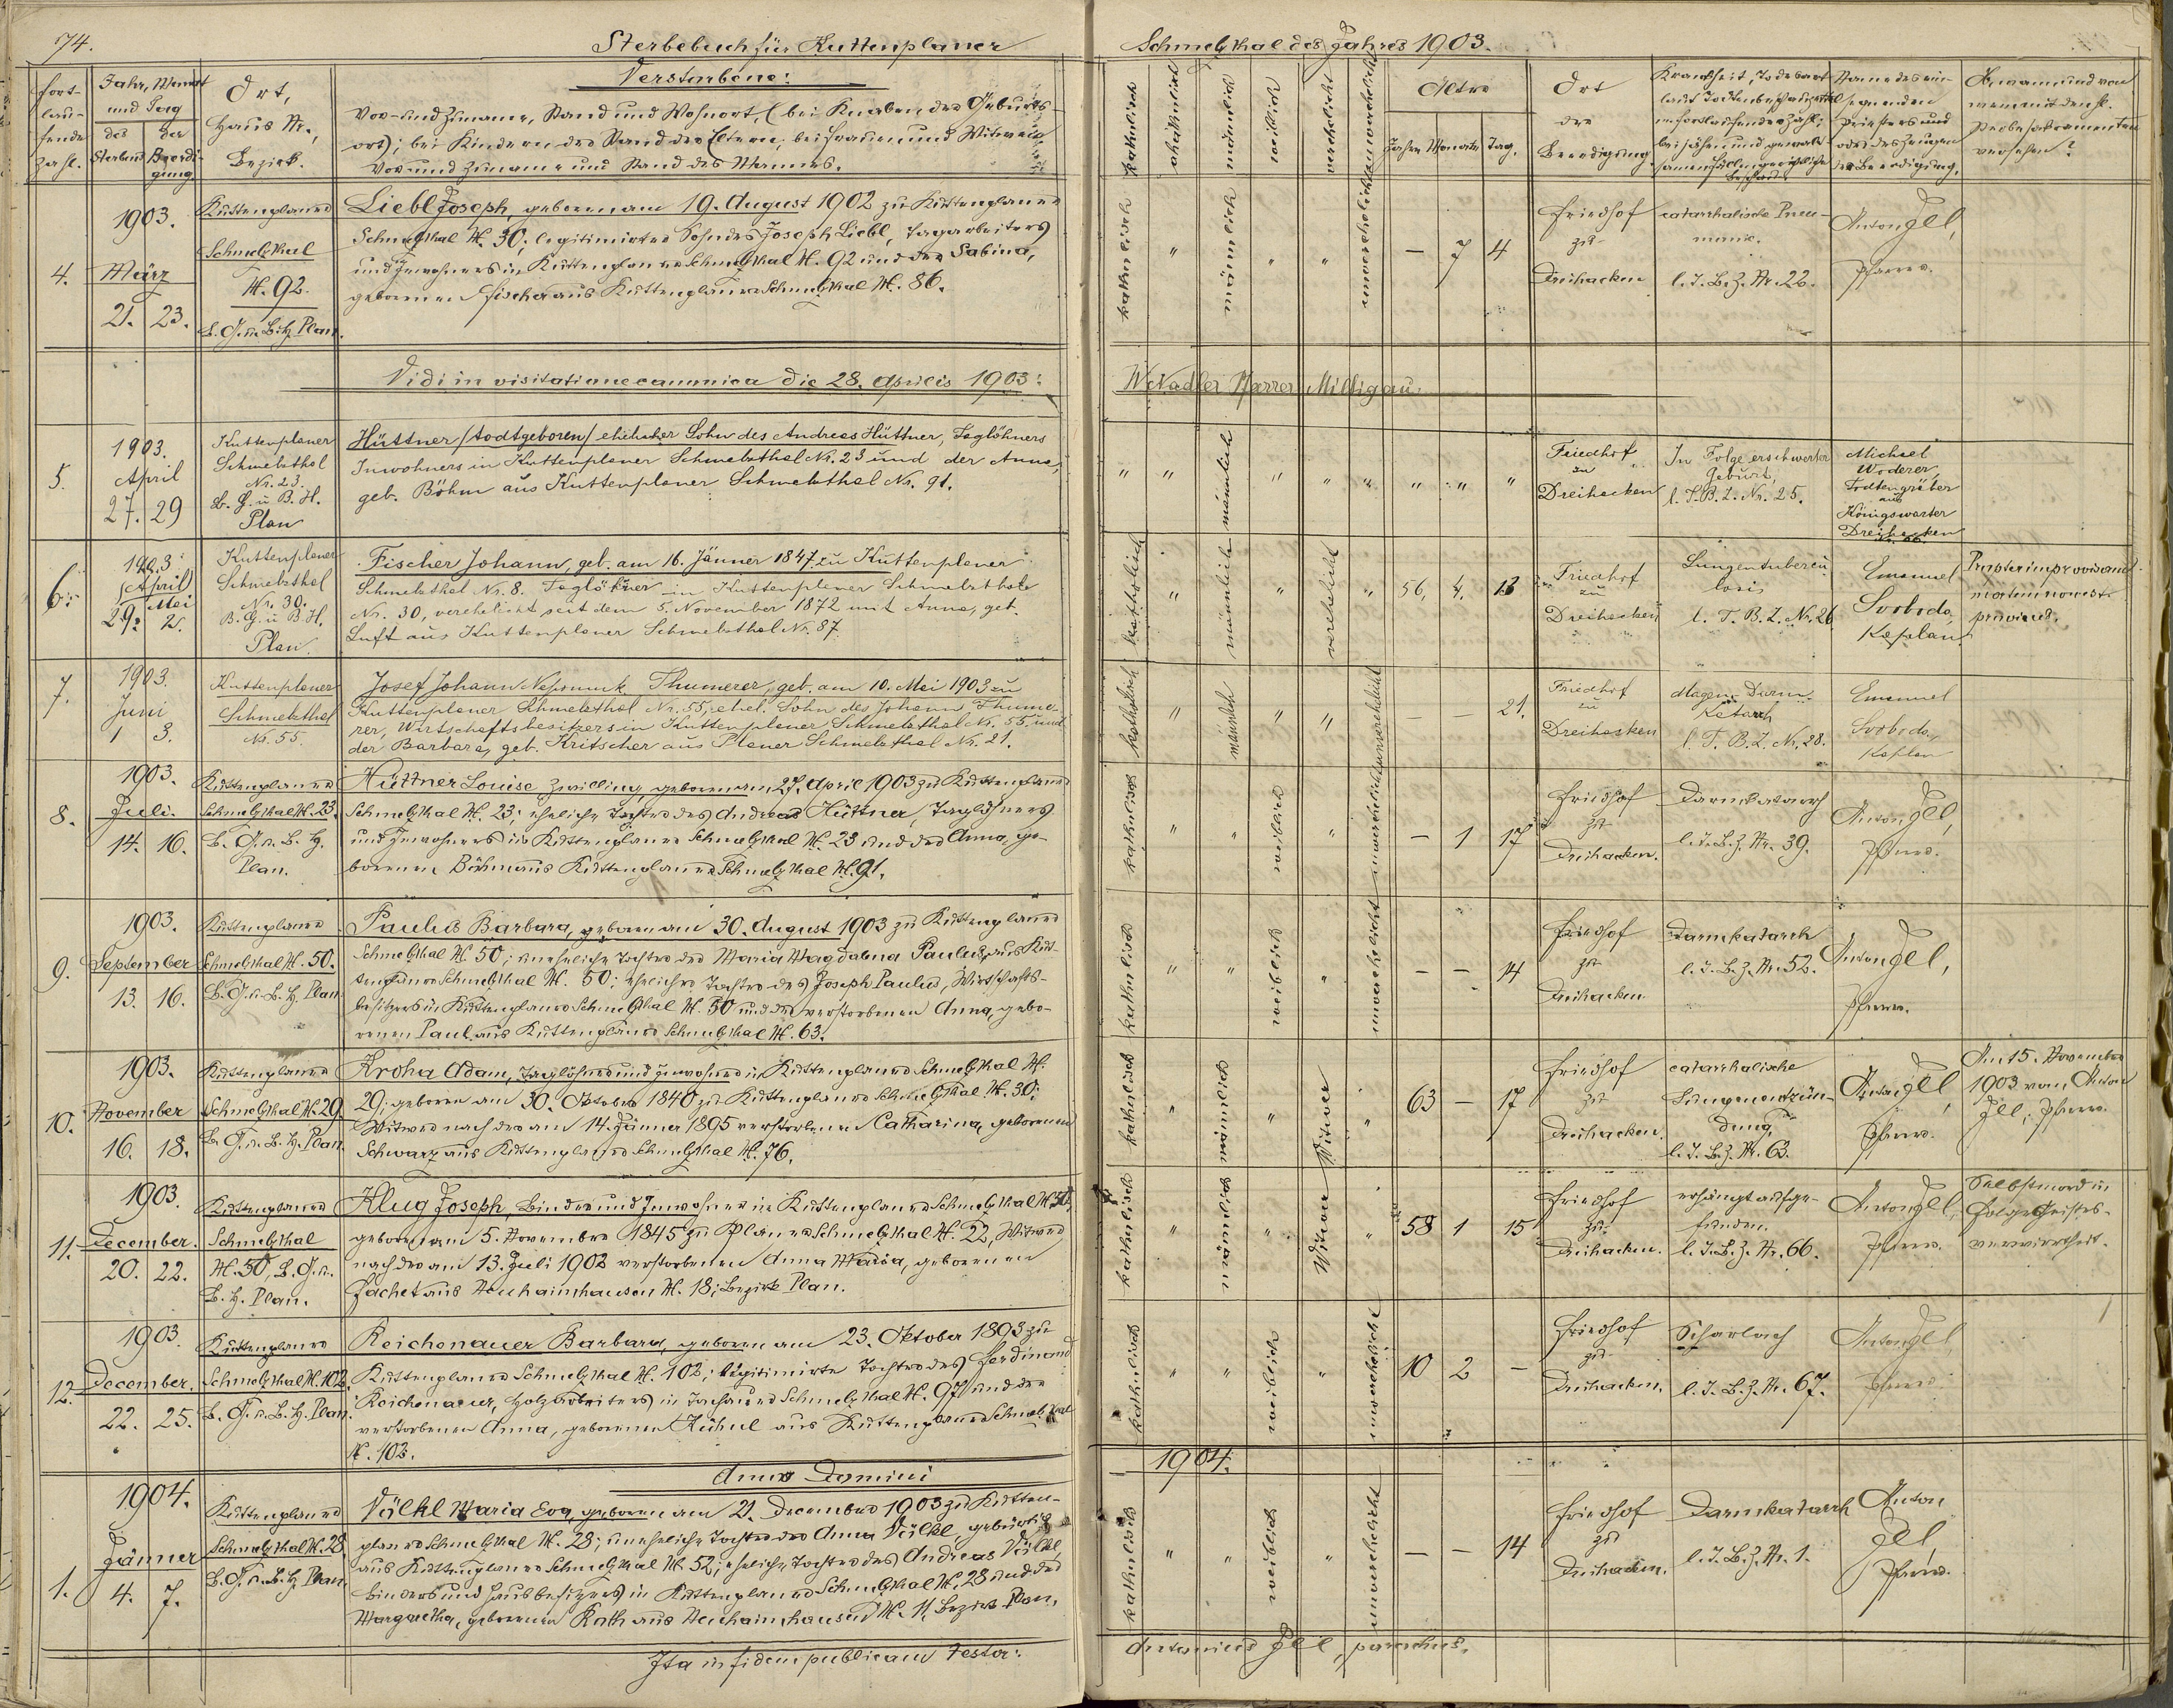 74.
Sterbebuch für Kuttenplaner
Schmelzthal des Jahres 1903.
Fort-
lau-
fende
Zahl.
Jahr, Monat
und Tag
des
Sterbens
der
Beerdi-
gung
Ort,
Haus Nr.,
Bezirk.
Verstorbene:
Vor- und Zuname, Stand und Wohnort, (bei Knaben der Geburts-
ort); bei Kindern der Stand der Eltern, bei Frauen und Witwen
Vor- und Zuname und Stand des Mannes.
katholisch
akatholisch
männlich
weiblich
verehelicht
unverehelicht
Alter
Jahre Monate Tag.
Ort
der
Beerdigung.
Krankheit, Todesart
laut Todtenbeschauzettel
in fortlaufender Zahl;
bei jähen und gewalt-
samen Fällen gerichtlicher
Beschau
Name des ein-
segnenden
Priesters und
oder des Zeugen
der Beerdigung.
Ob, wann und von
wem mit den hl.
Sterbesakramenten
versehen?
4.
1903.
März
21. 23.
Kuttenplaner
Schmelzthal
N. 92.
B. G. u. B. H. Plan.
Liebl Joseph, geboren am 19. August 1902 zu Kuttenplaner
Schmelzthal N. 30; legitimirter Sohn des Joseph Liebl, Tagarbeiters
und Inwohners in Kuttenplaner Schmelzthal N. 92 und der Sabina,
geborenen Fischer aus Kuttenplaner Schmelzthal N. 86.
katholisch " männlich " " unverehelicht – 7 4
Friedhof
zu
Dreihacken
catarrhalische Pneu-
monie.
l. T. B. Z. Nr. 22.
Anton Jell,
Pfarrer.
Vidi in visitatione canonica die 28. Aprilis 1903:
W. Nadler Pfarrer Milligau.
5.
1903.
April
27. 29
Kuttenplaner
Schmelzthal
Nr. 23.
B. G. u. B. H.
Plan
Hüttner /todtgeboren/ ehelicher Sohn des Andreas Hüttner, Taglöhners
Inwohners in Kuttenplaner Schmelzthal Nr. 23 und der Anna,
geb. Böhm aus Kuttenplaner Schmelzthal Nr. 91.
" " männlich " " " " " "
Friedhof
zu
Dreihacken
In Folge erschwerter
Geburt,
l. T. B. Z. Nr. 25.
Michael
Woderer,
Todtengräber
aus
Königswarter
Dreihacken
Nr. 66.
6.
1903
April Mai
29. 2.
Kuttenplaner
Schmelzthal
Nr. 30.
B. G. u B. H.
Plan.
Fischer Johann, geb. am 16. Jänner 1847 zu Kuttenplaner
Schmelzthal Nr. 8. Taglöhner in Kuttenplaner Schmelzthale
Nr. 30, verehelicht seit dem 5. November 1872 mit Anna, geb.
Luft aus Kuttenplaner Schmelzthal Nr. 87.
katholisch " männlich " verehelicht " 56, 4, 13
Friedhof
zu
Dreihacken
Lungentubercu-
losis
l. T. B. Z. Nr. 26
Emanuel
Svoboda,
Kaplan
Propter improvisam
mortem non est
provisus.
7.
1903.
Juni
1 3.
Kuttenplaner
Schmelzthal
Nr. 55.
Josef Johann Nepomuk Thumerer, geb. am 10. Mai 1903 zu
Kuttenplaner Schmelzthal Nr. 55, ehel. Sohn des Johann Thume-
rer, Wirtschaftsbesitzers in Kuttenplaner Schmelzthal Nr. 55 und
der Barbara, geb. Kritscher aus Planer Schmelzthal Nr. 21.
katholisch " männlich " " unverehelicht – – 21.
Friedhof
zu
Dreihacken
Magen-Darm-
Katarrh
l. T. B. Z. Nr. 28.
Emanuel
Svoboda,
Kaplan
8.
1903.
Juli.
14. 16.
Kuttenplaner
Schmelzthal N. 23.
B. G. u. B. H.
Plan.
Hüttner Louise Zwilling, geboren am 27. April 1903 zu Kuttenplaner
Schmelzthal N. 23; eheliche Tochter des Andreas Hüttner, Taglöhners
und Inwohners in Kuttenplaner Schmelzthal N. 23 und der Anna, ge-
borenen Böhm aus Kuttenplaner Schmelzthal N. 91.
katholisch " " weiblich " unverehelicht – 1 17
Friedhof
zu
Dreihacken.
Darmkatarrh
l. T. B. Z. Nr. 39.
Anton Jell,
Pfarrer.
9.
1903.
September
13. 16.
Kuttenplaner
Schmelzthal N. 50.
B. G. u. B. H. Plan
Paulus Barbara, geboren am 30. August 1903 zu Kuttenplaner
Schmelzthal N. 50; uneheliche Tochter der Maria Magdalena Paulus, aus Kut-
tenplaner Schmelzthal N. 50; ehelicher Tochter des Joseph Paulus, Wirtschafts-
besitzers in Kuttenplaner Schmelzthal N. 50 und der verstorbenen Anna, gebo-
renen Paul aus Kuttenplaner Schmelzthal N. 63.
katholisch " " weiblich " unverehelicht – – 14
Friedhof
zu
Dreihacken
Darmkatarrh
l. T. B. Z. Nr. 52.
Anton Jell,
Pfarrer.
10.
1903.
November
16. 18.
Kuttenplaner
Schmelzthal N. 29
B. G. u. B. H. Plan.
Kroha Adam, Taglöhner und Inwohner in Kuttenplaner Schmelzthal N.
29; geboren am 30. Oktober 1840 zu Kuttenplaner Schmelzthal N. 30;
Witwer nach der am 14. Jänner 1895 verstorbenen Catharina, geborenen
Schwarz aus Kuttenplaner Schmelzthal N. 76.
katholisch " männlich " Witwer " 63 – 17
Friedhof
zu
Dreihacken.
catarrhalische
Lungenentzün-
dung,
l. T. B. Z. Nr. 63.
Anton Jell,
Pfarrer.
Am 15. November
1903 vom Anton
Jell, Pfarrer.
11.
1903.
December.
20. 22.
Kuttenplaner
Schmelzthal
N. 50, B. G. u.
B. H. Plan.
Klug Joseph, Binder und Inwohner in Kuttenplaner Schmelzthal N. 50,
geboren am 5. November 1845 zu Planer Schmelzthal N. 22, Witwer
nach der am 13. Juli 1902 verstorbenen Anna Maria, geborenen
Zachet aus Neuhaimhausen N. 18; Bezirk Plan.
katholisch " männlich " Witwer " 58 1 15
Friedhof
zu
Dreihacken.
erhängt aufge-
funden.
l. T. B. Z. Nr. 66.
Anton Jell,
Pfarrer.
Selbstmord in
Folge Geistes-
verwirrtheit.
12.
1903
December.
22. 25.
Kuttenplaner
Schmelzthal N. 102.
B. G. u. B. H. Plan.
Reichenauer Barbara, geboren am 23. Oktober 1893 zu
Kuttenplaner Schmelzthal N. 102; legitimirte Tochter des Ferdinand
Reichenauer, Holzarbeiters in Tachauer Schmelzthal N. 97 und der
verstorbenen Anna, geborenen Kühnl aus Kuttenplaner Schmelzthal
N. 102.
katholisch " " weiblich " unverehelicht 10 2 –
Friedhof
zu
Dreihacken.
Scharlach
l. T. B. Z. Nr. 67.
Anton Jell,
Pfarrer
Anno Domini
1904.
1.
1904.
Jänner
4. 7.
Kuttenplaner
Schmelzthal N. 28
B. G. u. B. H. Plan.
Völkl Maria Eva, geboren am 21. December 1903 zu Kutten-
planer Schmelzthal N. 28; uneheliche Tochter der Anna Völkl, gebürtig
aus Kuttenplaner Schmelzthal N. 52; eheliche Tochter des Andreas Völkl,
Binders und Hausbesitzers in Kuttenplaner Schmelzthal N. 28 und der
Margaretha, geborenen Rath aus Neuhaimhausen N. 11, Bezirk Plan.
katholisch " " weiblich " unverehelicht – – 14
Friedhof
zu
Dreihacken.
Darmkatarrh
l. T. B. Z. Nr. 1.
Anton
Jell,
Pfarrer.
Ita in fidem publicam testor:
Antonius Jell, parochus.